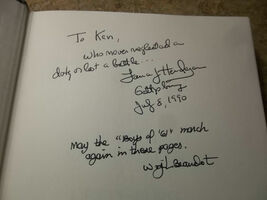 To Ken,
who never neglected a
duty or lost a battle...
Lance J. Herdegen
Gettysburg
July 8, 1990
May the "Boys of '61" march
again in these pages.
Wm J K Beaudot